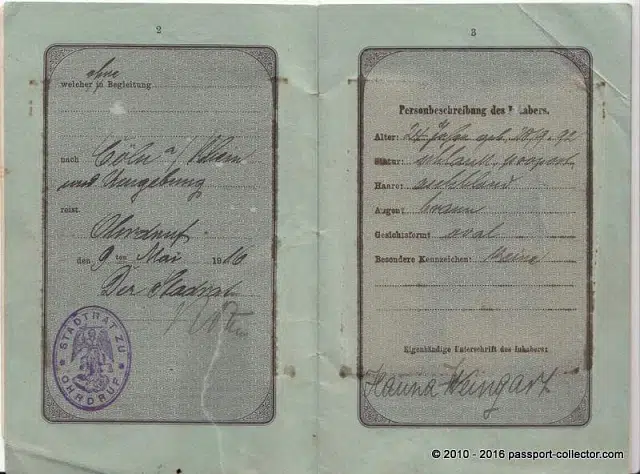 2
ohne
welcher in Begleitung
nach Cöln a/Rhein
und Umgebung
reist.
Ohrdruf
den 9 ten Mai 1916
Der Stadtrat
STADTRAT ZU
OHRDRUF
3
Personbeschreibung des Inhabers.
Alter: 24 Jahre geb. 20/9. 92
Statur: schlank, proport
Haare: aschblond
Augen: braun
Gesichtsform: oval
Besondere Kennzeichen: keine
Eigenhändige Unterschrift des Inhabers:
Hanna Weingart
© 2010 - 2016 passport-collector.com